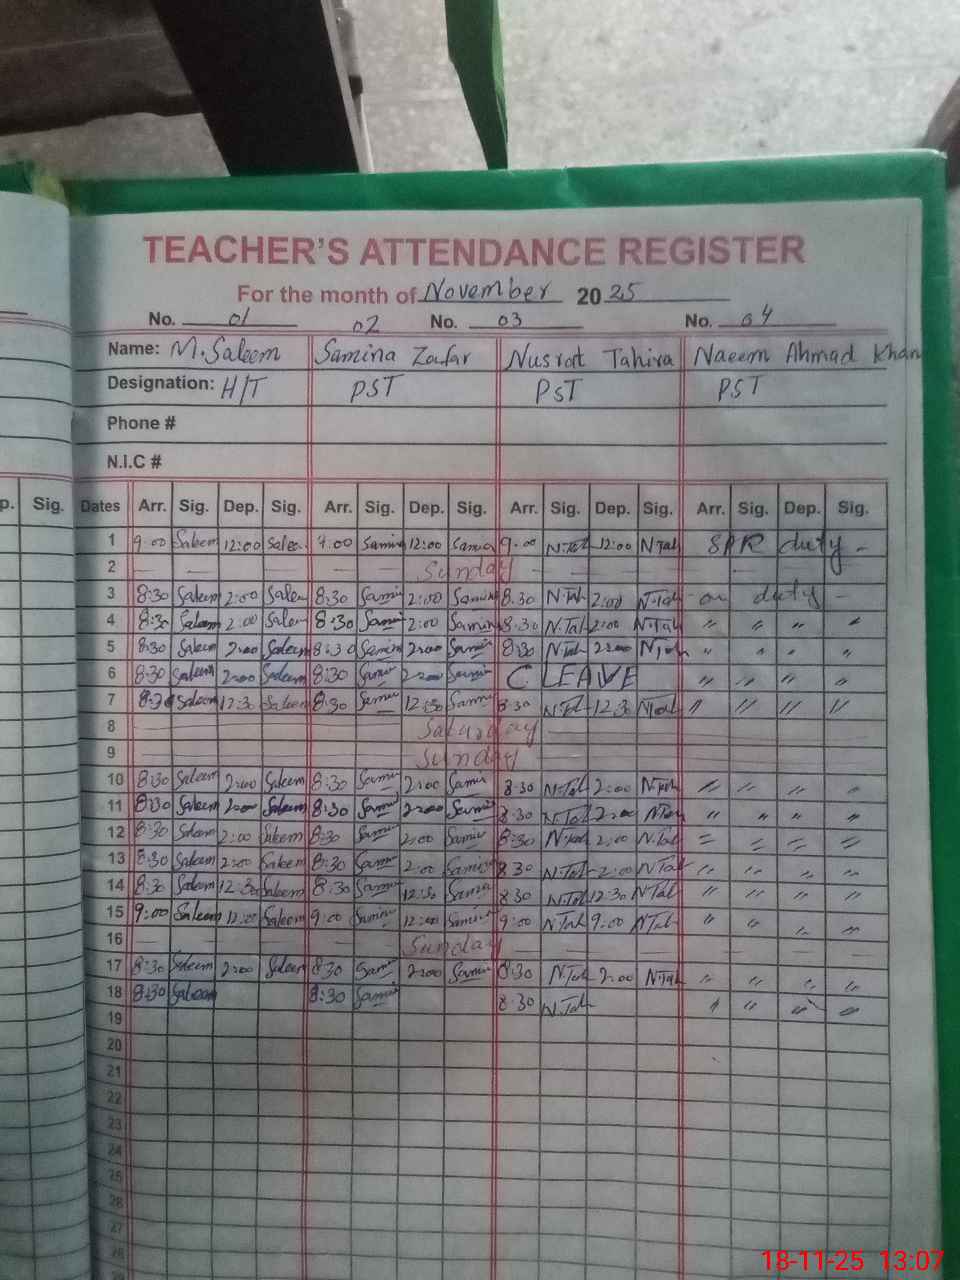 TEACHER'S ATTENDANCE REGISTER
For the month of November 2025
No. 01 02 No. 03 No. 04
Name: M.Saleem Samina Zafar Nusrat Tahira Naeem Ahmad Khan
Designation: H/T PST PST PST
Phone #
N.I.C #
p. Sig. Dates Arr. Sig. Dep. Sig. Arr. Sig. Dep. Sig. Arr. Sig. Dep. Sig. Arr. Sig. Dep. Sig.
1 9.00 Saleem 12:00 Saleem 9.00 Samina 12:00 Samina 9.00 N.Tah 12:00 N.Tah duty -
2 Sunday
3 8:30 Saleem 2:00 Saleem 8:30 Samina 2:00 Samina 8.30 N.Tah 2:00 N.Tah on duty -
4 8:30 Saleem 2:00 Saleem 8:30 Samina 2:00 Samina 8:30 N.Tah 2:00 N.Tah " " " "
5 8:30 Saleem 2:00 Saleem 8:30 Samina 2:00 Samina 8:30 N.Tah 2:00 N.Tah " " " "
6 8:30 Saleem 2:00 Saleem 8:30 Samina 2:00 Samina C LEAVE " " " "
7 8:30 Saleem 12:30 Saleem 8:30 Samina 12:30 Samina 8:30 N.Tah 12:30 N.Tah " " " "
8 Saturday
9 Sunday
10 8:30 Saleem 2:00 Saleem 8:30 Samina 2:00 Samina 8:30 N.Tah 2:00 N.Tah " " " "
11 8:30 Saleem 2:00 Saleem 8:30 Samina 2:00 Samina 8:30 N.Tah 2:00 N.Tah " " " "
12 8:30 Saleem 2:00 Saleem 8:30 Samina 2:00 Samina 8:30 N.Tah 2:00 N.Tah " " " "
13 8:30 Saleem 2:00 Saleem 8:30 Samina 2:00 Samina 8:30 N.Tah 2:00 N.Tah " " " "
14 8:30 Saleem 12:30 Saleem 8:30 Samina 12:30 Samina 8:30 N.Tah 12:30 N.Tah " " " "
15 9:00 Saleem 12:00 Saleem 9:00 Samina 12:00 Samina 9:00 N.Tah 9.00 N.Tah " " " "
16 Sunday
17 8:30 Saleem 2:00 Saleem 8:30 Samina 2:00 Samina 8:30 N.Tah 2:00 N.Tah " " " "
18 8:30 Saleem 8:30 Samina 8:30 N.Tah " " " "
19
20
21
22
23
24
25
26
27
28
18-11-25 13:07